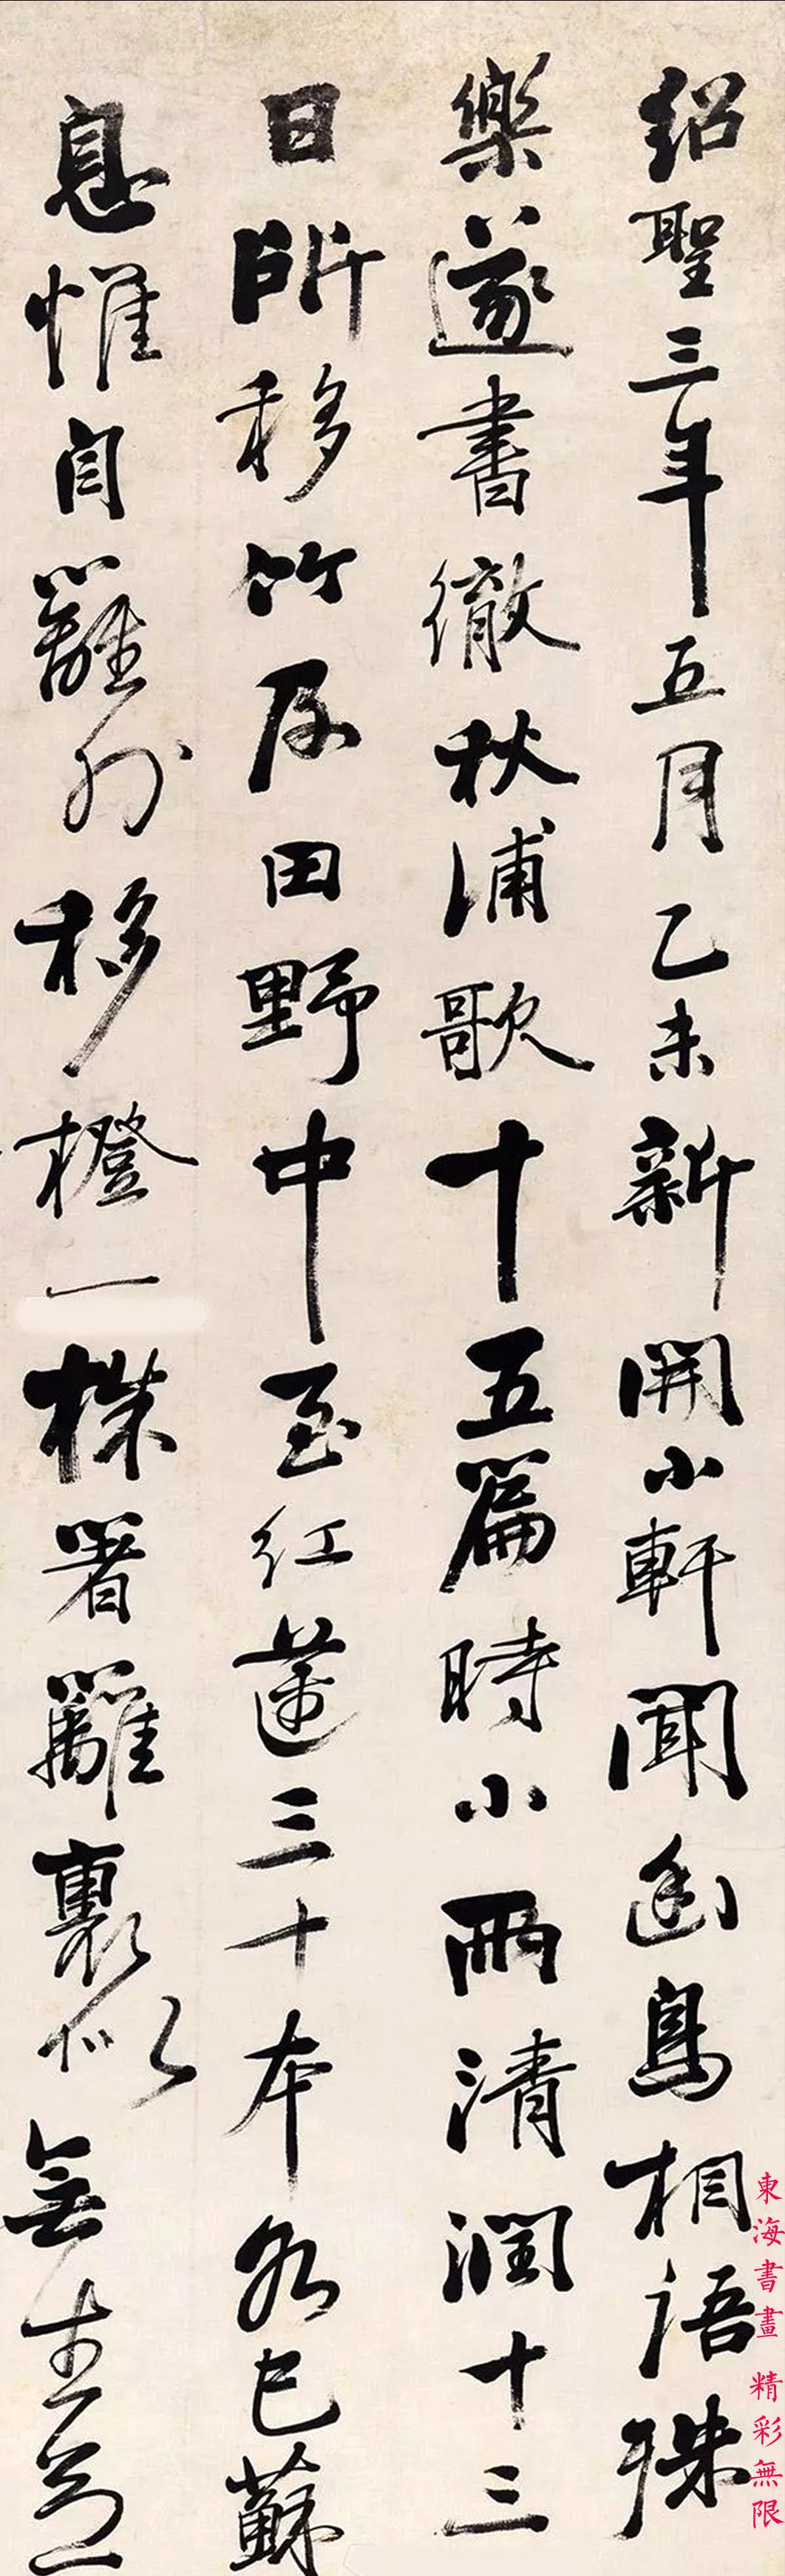 紹聖三年五月乙未新開小軒聞幽鳥相語殊
樂遂書徹秋浦歌十五篇時小雨清潤十三
日所移竹及田野中至紅蓮三十本各已蘇
息惟自籬外移橙一株著籬裏似無生意
東海書畫 精彩無限